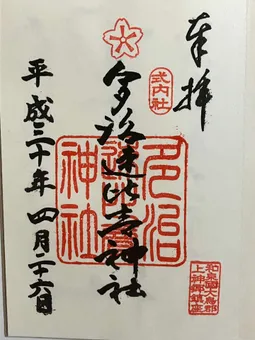 奉拝
式内社
多治速比売神社
平成三十年四月二十六日
和泉國大鳥郡
上神郷鎮座